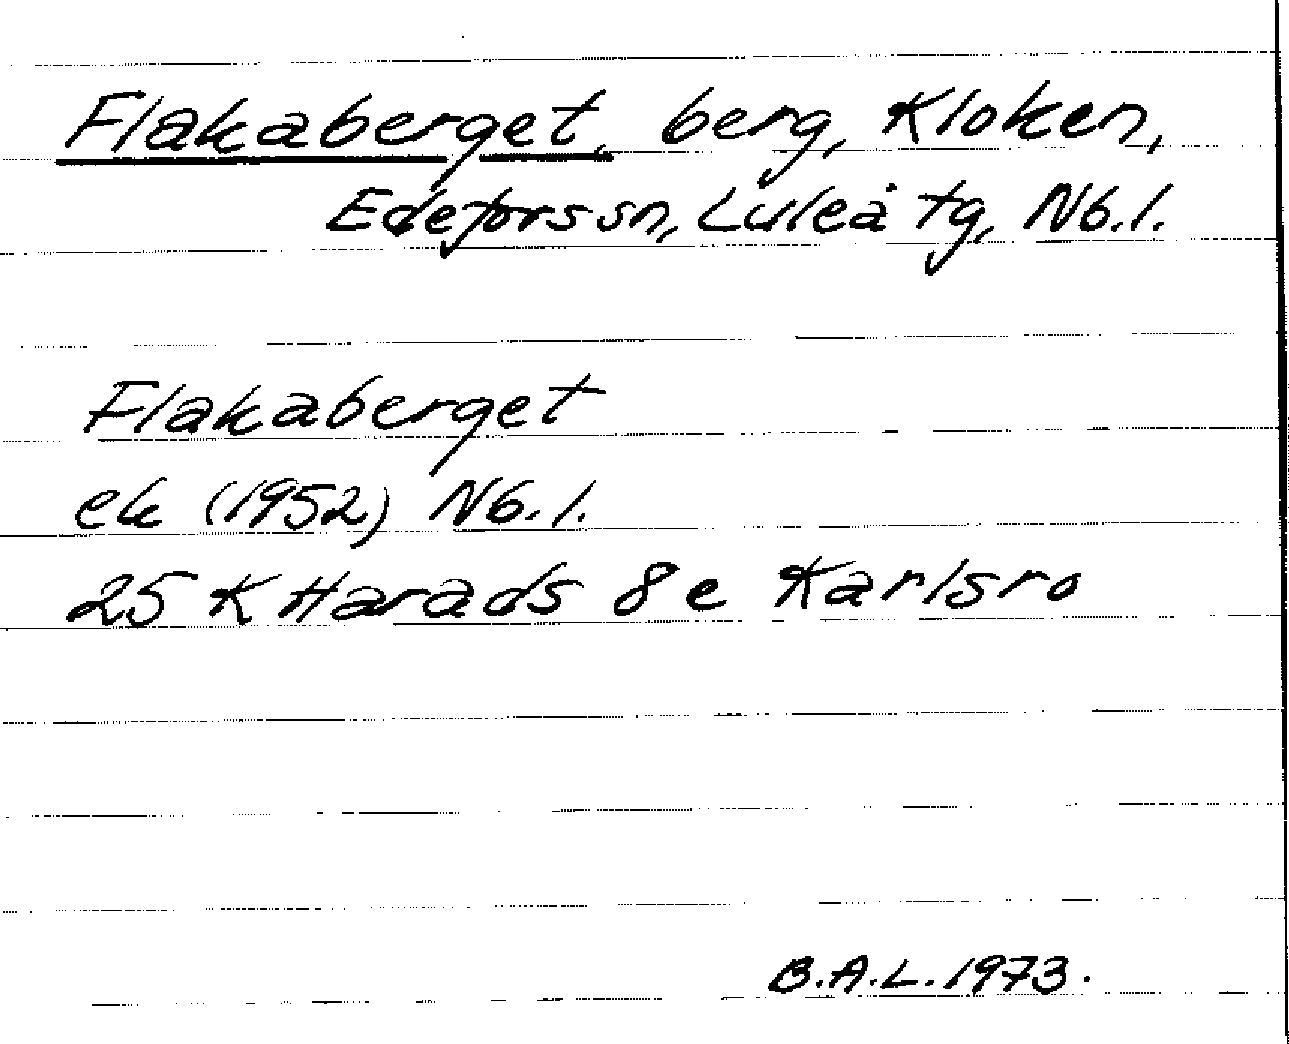 Flakaberget, berg, Kloken,
Edefors sn, Luleå tg, Nb.l.
Flakaberget
ek (1952) Nb.l.
25 K Harads 8e Karlsro
B.A.L. 1973.